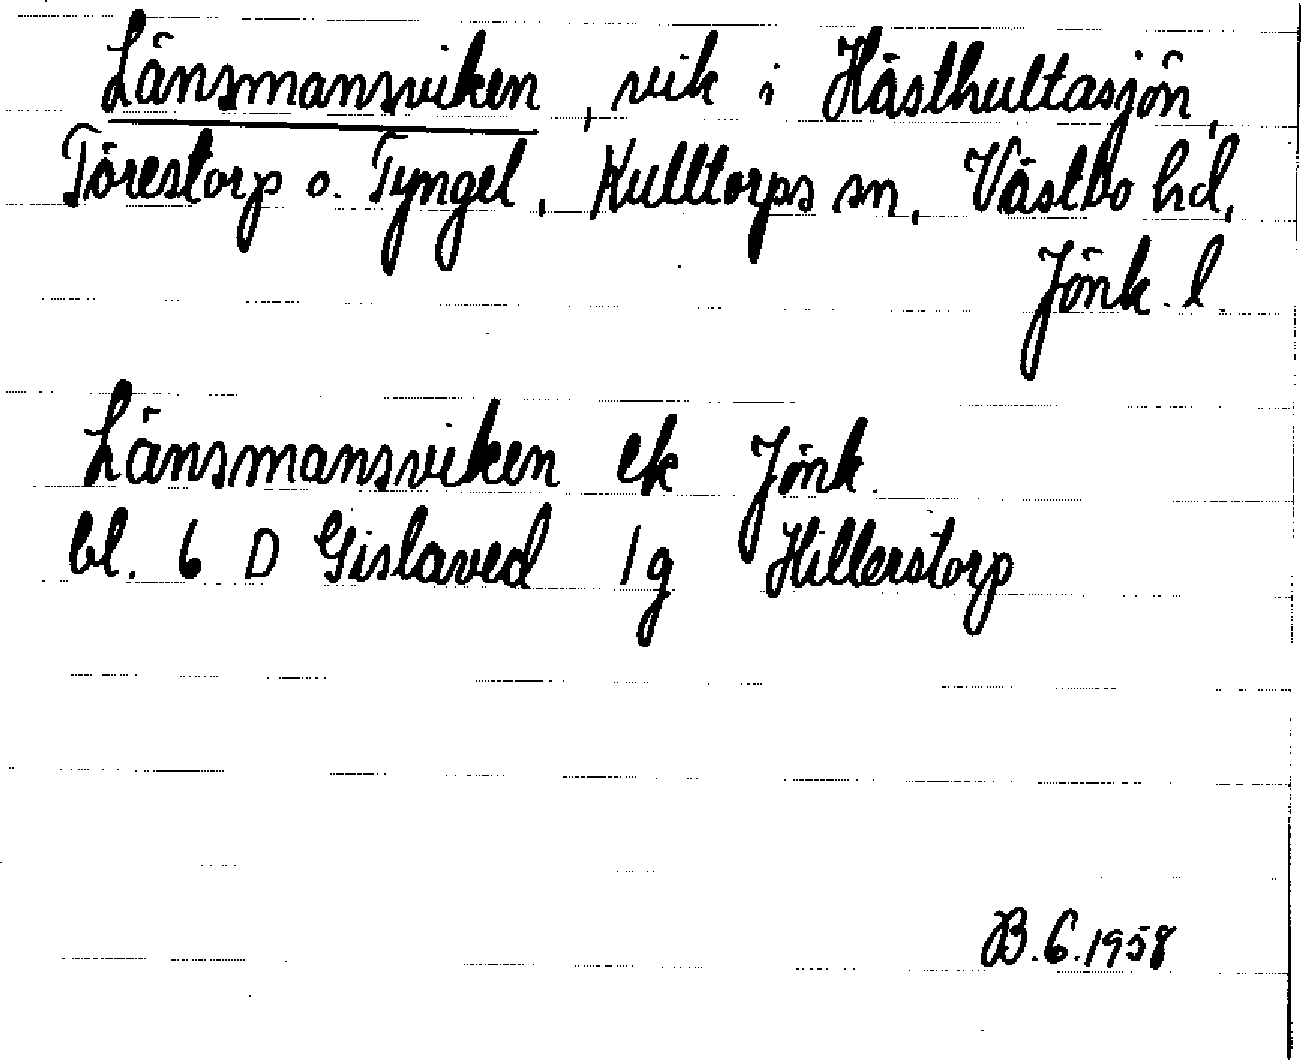 Länsmansviken, vik i Hästhultasjön,
Törestorp o. Tyngel, Kulltorps sn, Västbo hd,
Jönk. l.
Länsmansviken ek Jönk.
bl. 6 D Gislaved 1g Hillerstorp
B.G.1958